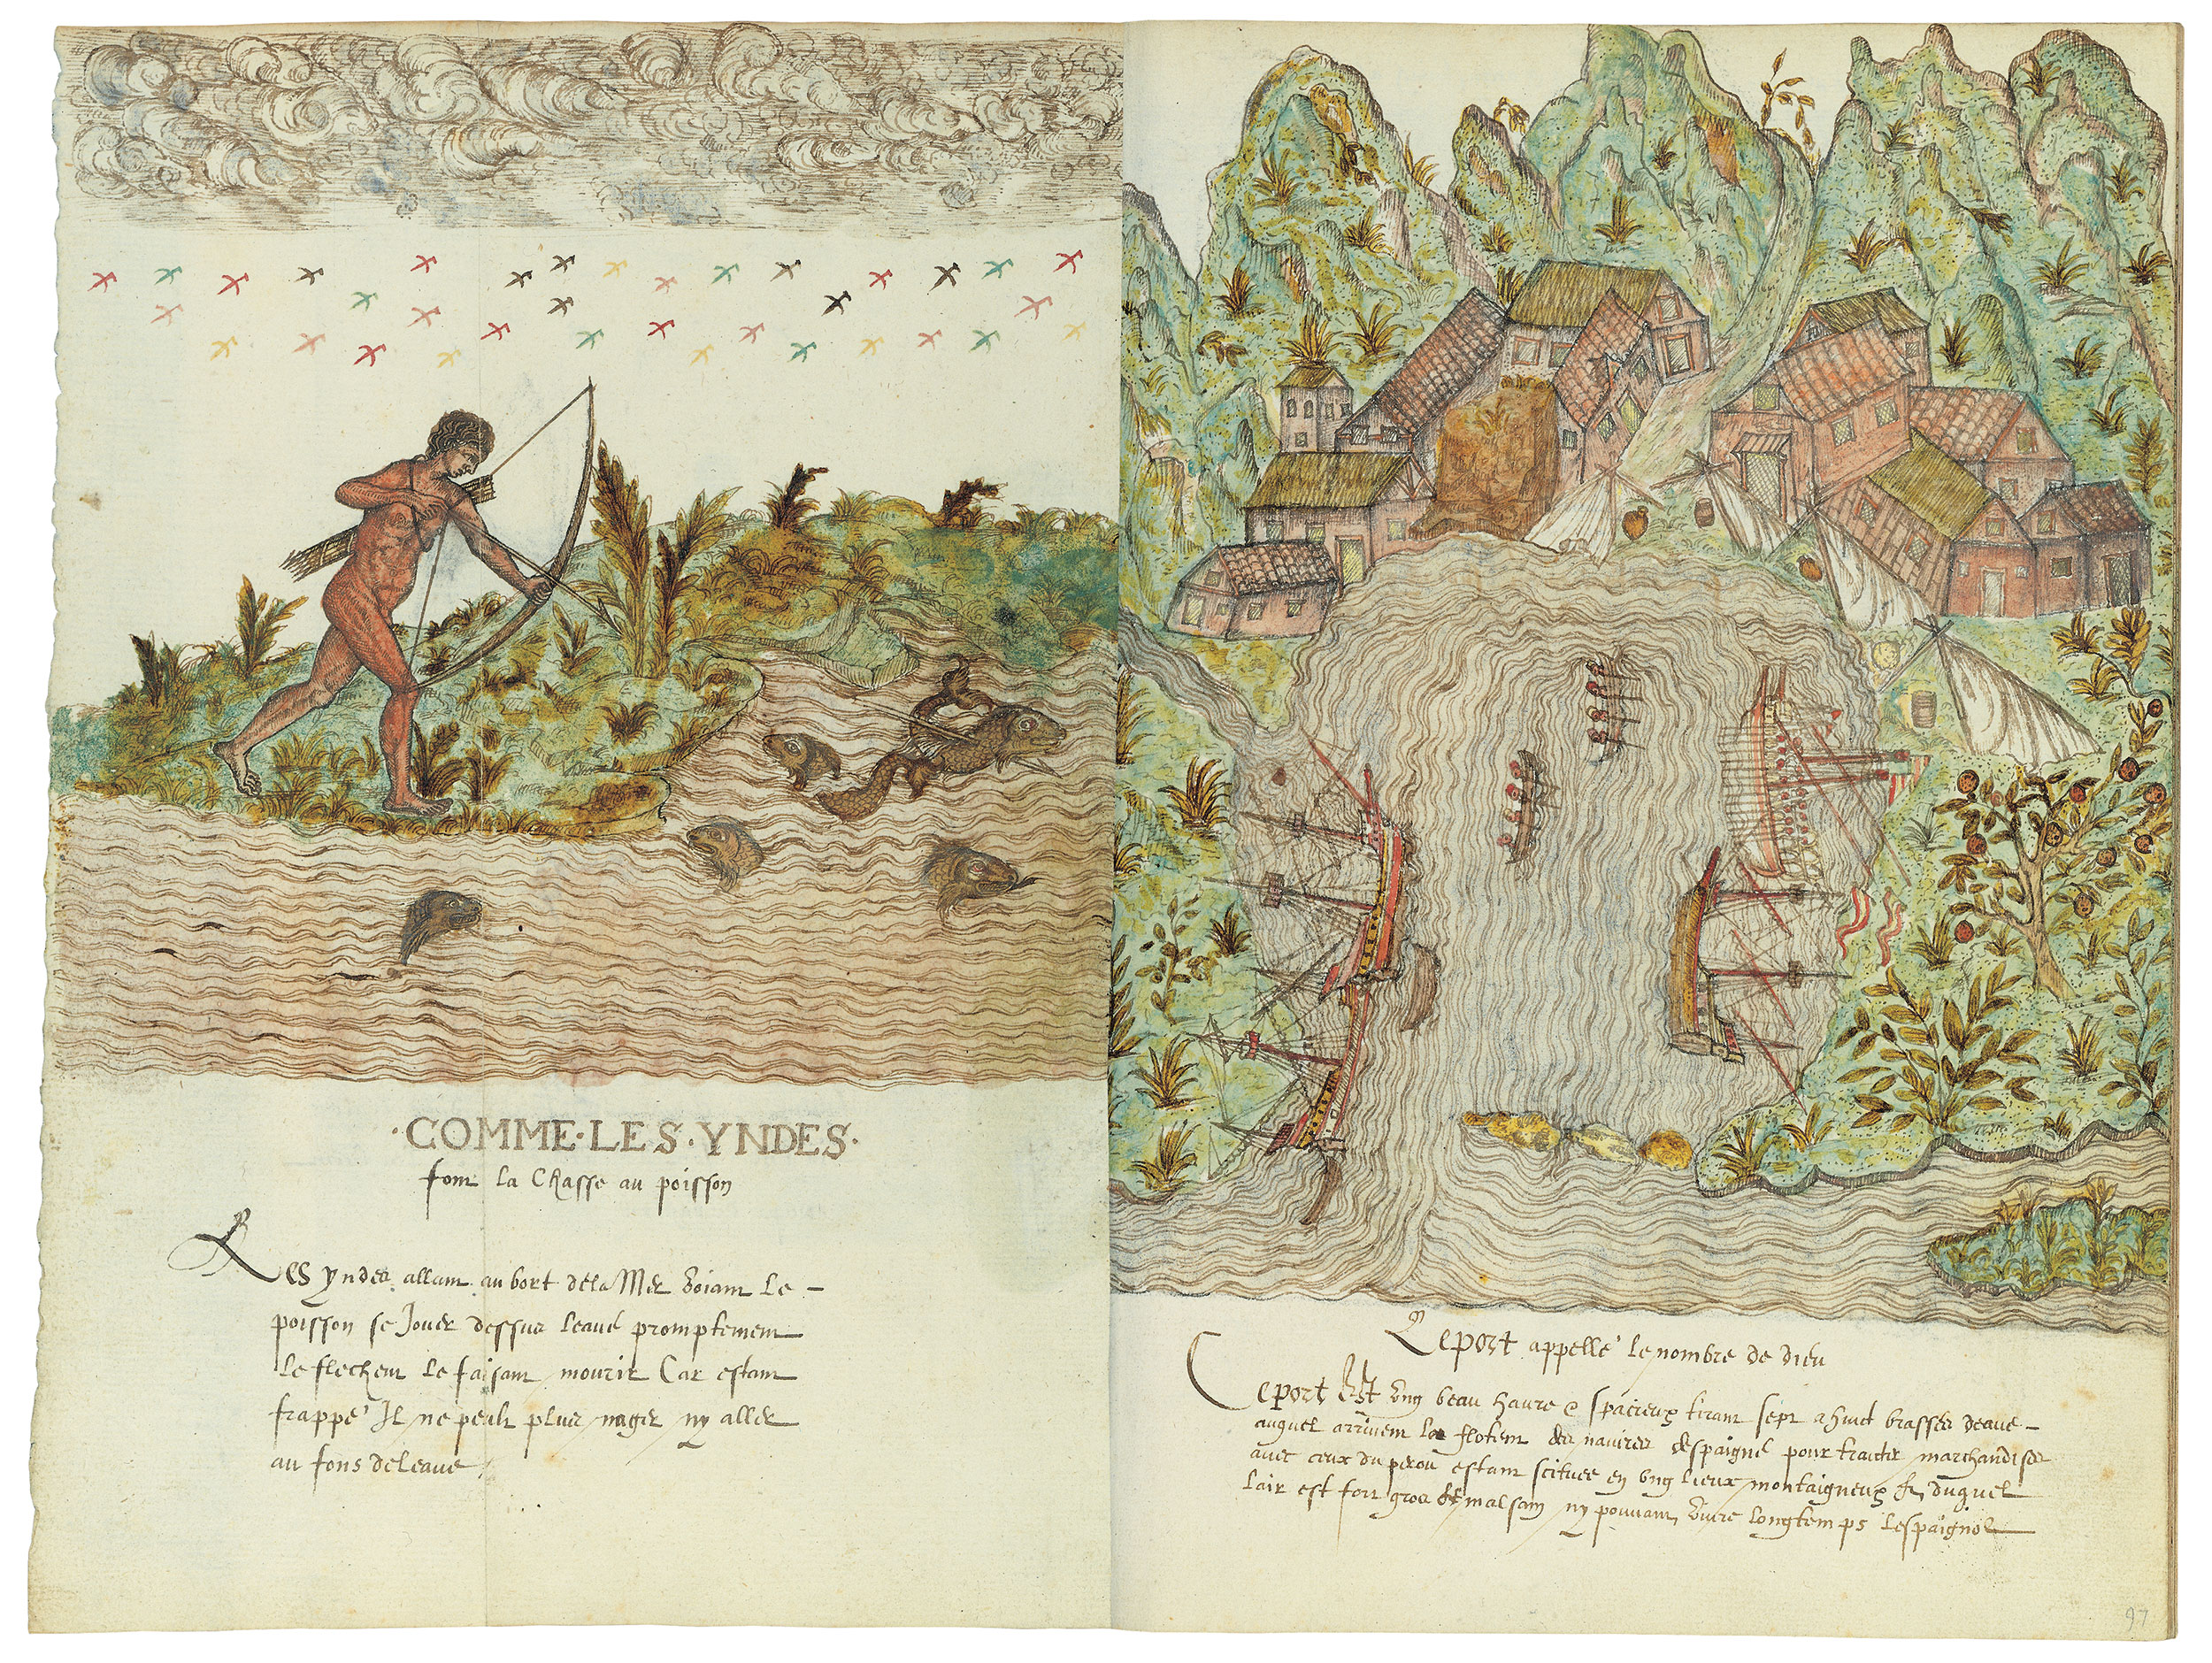 ·COMME·LES·YNDES·
font la Chasse au poisson
Les yndes allant au bort dela Mer voiant le –
poisson se Jouer dessus leaue promptement
le flechent le faisant mourir Car estant
frappé Il ne peult plus nager ny aller
au fons deleaue
Le port appellé le nombre de dieu
Ce port Est ung beau havre & spacieux tirant sept a huict brasses deaue –
auquel arrivent la flotent des navires despaigne pour traicter marchandises
avec ceux du perou estant scituee en ung lieux montaigneux & duquel
lair est fort gros & malsain ny pouvant vivre longtemps lespaignol
97